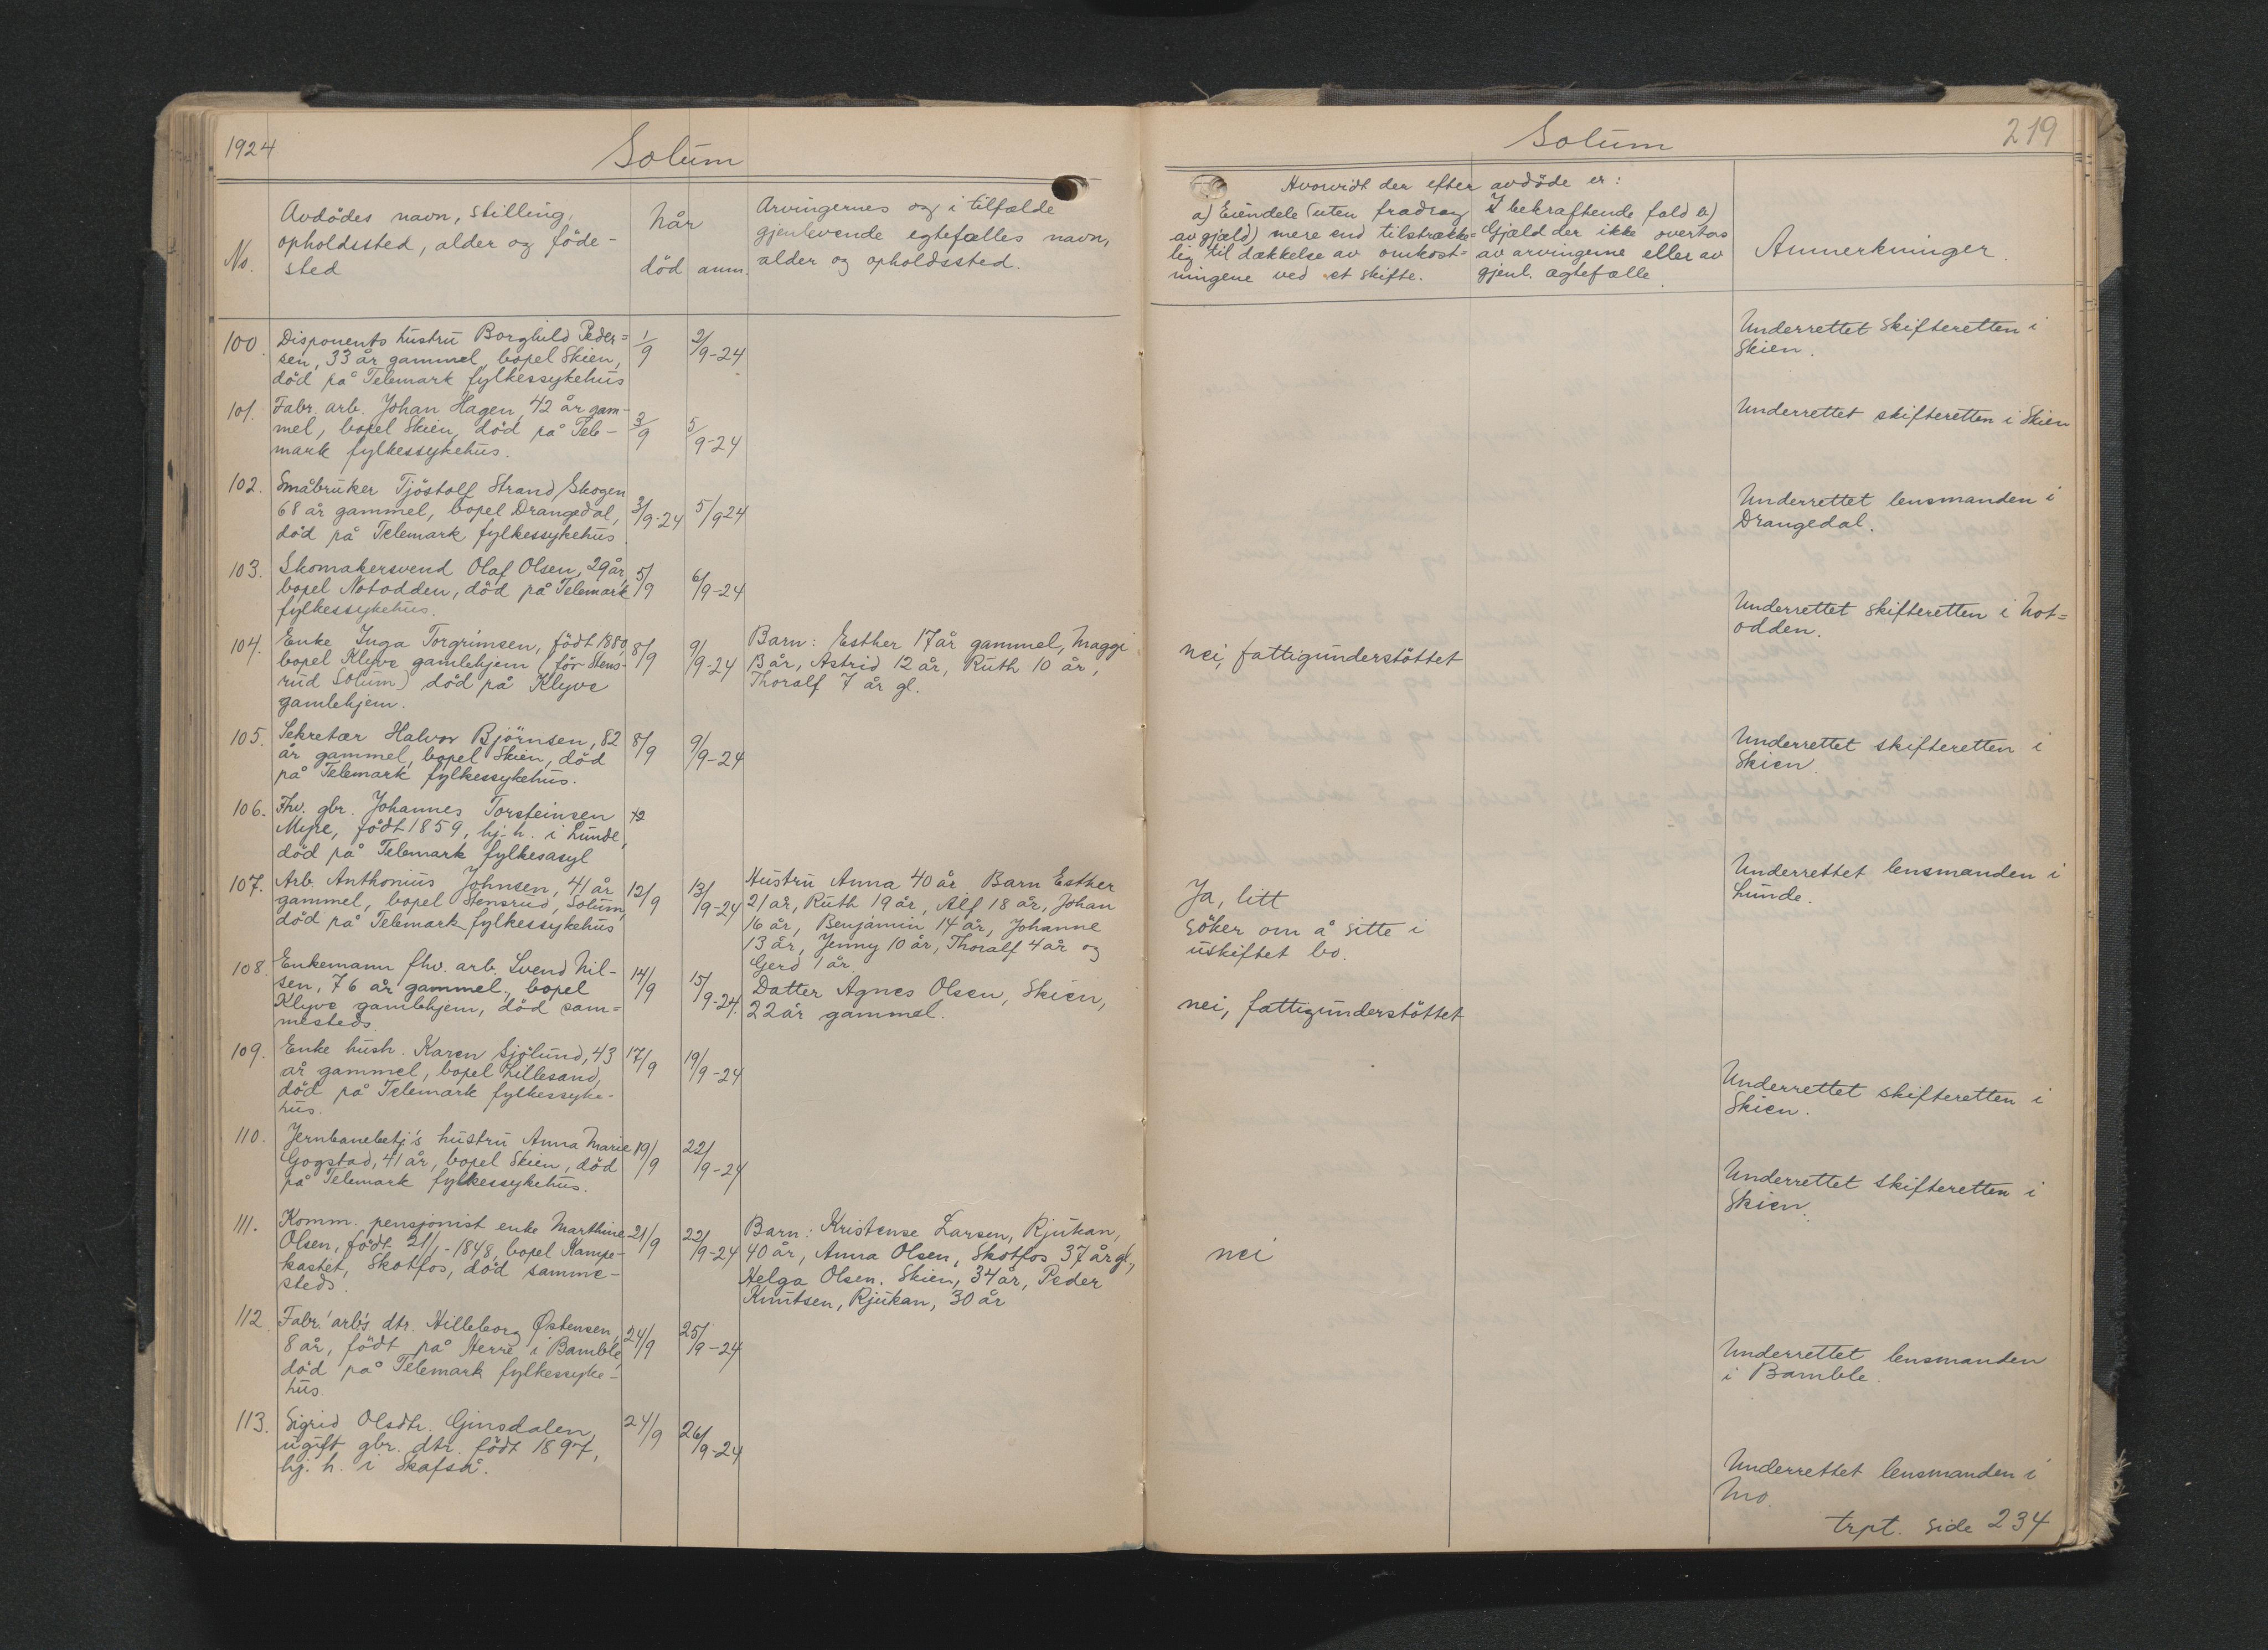 1924
Solum
No.
Avdödes navn, stilling,
opholdssted, alder og föde-
sted
Når
död anm.
Arvingernes og i tilfælde
gjenlevende egtefælles navn,
alder og opholdssted.
100. Disponents hustru Borghild Peder=
sen, 33 år gammel, bopel Skien,
död på Telemark fylkessykehus
1/9
2/9-24
101. Fabr. arb. Johan Hagen, 42 år gam-
mel, bopel Skien, död på Tele-
mark fylkessykehus.
3/9
5/9-24
102. Småbruker Tjöstolf Strand/Skogen
68 år gammel, bopel Drangedal,
död på Telemark fylkessykehus.
3/9-24
5/9-24
103. Skomakersvend Olaf Olsen, 29 år,
bopel Notodden, död på Telemark
fylkessykehus.
5/9
6/9-24
104. Enke Inga Torgrimsen, födt 1880,
bopel Klyve gamlehjem (för Stens-
rud Solum) död på Klyve
gamlehjem.
8/9
9/9-24
Barn: Esther 17 år gammel, Maggi
13 år, Astrid 12 år, Ruth 10 år,
Thoralf 7 år gl.
105. Sekretær Halvor Björnsen, 82
år gammel, bopel Skien, död
på Telemark fylkessykehus.
8/9
9/9-24
106. Fhv. gbr. Johannes Torsteinsen
Myre, födt 1859, hj. h. i Lunde,
död på Telemark fylkesasyl
107. Arb. Anthonius Johnsen, 41 år
gammel, bopel Stensrud, Solum,
död på Telemark fylkessykehus
12/9
13/9-24
Hustru Anna 40 år. Barn Esther
21 år, Ruth 19 år, Alf 18 år, Johan
16 år, Benjamin 14 år, Johanne
13 år, Jenny 10 år, Thoralf 4 år og
Gerd 1 år.
108. Enkemann fhv. arb. Svend Nil-
sen, 76 år gammel, bopel
Klyve gamlehjem, död sam=
mesteds.
14/9
15/9-24.
Datter Agnes Olsen, Skien,
22 år gammel.
109. Enke hush. Karen Sjölund, 43
år gammel, bopel Lillesand,
död på Telemark fylkessyke-
hus.
17/9
19/9-24
110. Jernbanebetj's hustru Anna Marie
Gogstad, 41 år, bopel Skien, död
på Telemark fylkessykehus.
19/9
22/9-24
111. Komm. pensjonist enke Marthine
Olsen, födt 21/1-1848, bopel Kampe-
kastet, Skotfos, död samme-
steds.
21/9
22/9-24
Barn: Kristense Larsen, Rjukan,
40 år, Anna Olsen, Skotfos 37 år gl.,
Helga Olsen. Skien, 34 år, Peder
Knutsen, Rjukan, 30 år
112. Fabr. arb's dtr. Hilleborg Østensen,
8 år, födt på Herre i Bamble,
död på Telemark fylkessyke-
hus.
24/9
25/9-24
113. Sigrid Olsdtr. Ginsdalen,
ugift gbr. dtr. födt 1897,
hj. h. i Skafså.
24/9
26/9-24
Solum
219
Hvorvidt der efter avdöde er:
a) Eiendele (uten fradrag
av gjæld) mere end tilstrække=
lig til dækkelse av omkost=
ningene ved et skifte.
I bekræftende fald b)
Gjæld der ikke overtas
av arvingerne eller av
gjenl. ægtefælle.
Anmerkninger.
Underrettet Skifteretten i
Skien.
Underrettet skifteretten i Skien
Underrettet lensmanden i
Drangedal.
Underrettet skifteretten i Not=
odden.
nei, fattigunderstöttet
Underrettet skifteretten i
Skien.
Underrettet lensmanden i
Lunde.
Ja, litt
söker om å sitte i
uskiftet bo.
nei, fattigunderstöttet
Underrettet skifteretten i
Skien.
Underrettet skifteretten i
Skien.
nei
Underrettet lensmanden
i Bamble.
Underrettet lensmanden i
Mo.
trpt. side 234